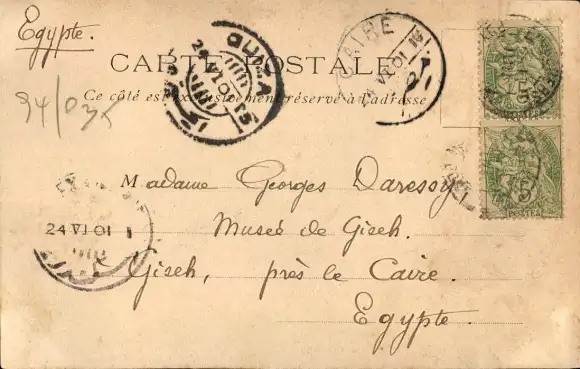 Egypte.
CARTE POSTALE
Ce côté est exclusivement réservé à l'adresse
94/035
CAIRE
VI 01
GUIZA
24 VI 01
24 VI 01
5
POSTES
Madame Georges Daressy
Museé de Giseh.
Giseh, près le Caire.
Egypte.